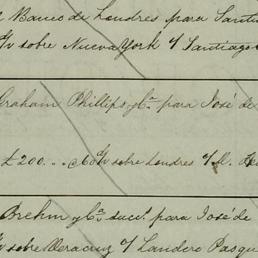 Banco de Londres para Santi
d/v sobre Nueva York o/ Santiago
Graham Phillips y Ca. para José de
£200... a 60 d/v sobre Londres o/ M.
Brehm y Ca. succs. para José de
d/v sobre Veracruz o/ Landero Pasqu